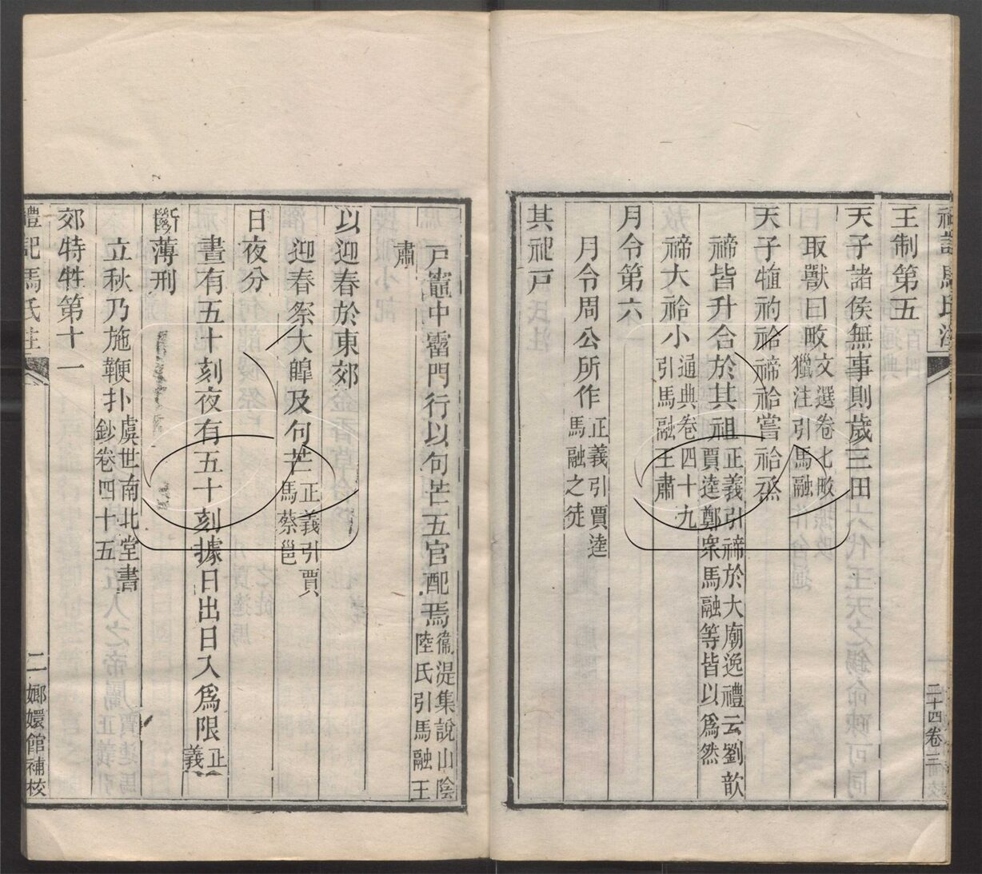 禮記馬氏注
二十四卷三
王制第五
天子諸侯無事則歲三田
取獸曰畋文選卷七畋
獵注引馬融
天子犆礿祫禘祫嘗祫烝
禘皆升合於其祖正義引禘於大廟逸禮云劉歆
賈逵鄭衆馬融等皆以爲然
禘大祫小通典卷四十九
引馬融王肅
月令第六
月令周公所作正義引賈逵
馬融之徒
其祀戸
戸竈中霤門行以句芒五官配焉衞湜集說山陰
陸氏引馬融王
肅
以迎春於東郊
迎春祭大皥及句芒正義引賈
馬蔡邕
日夜分
晝有五十刻夜有五十刻據日出日入爲限正
義
斷薄刑
立秋乃施鞭扑虞世南北堂書
鈔卷四十五
郊特牲第十一
禮記馬氏注
二
嫏嬛館補校